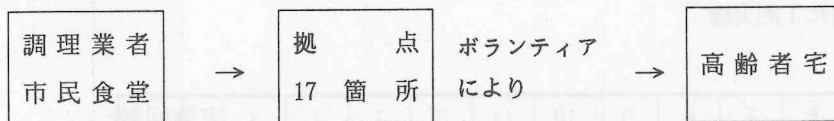 調理業者
市民食堂
→
拠点
17箇所
ボランティア
により
→
高齢者宅